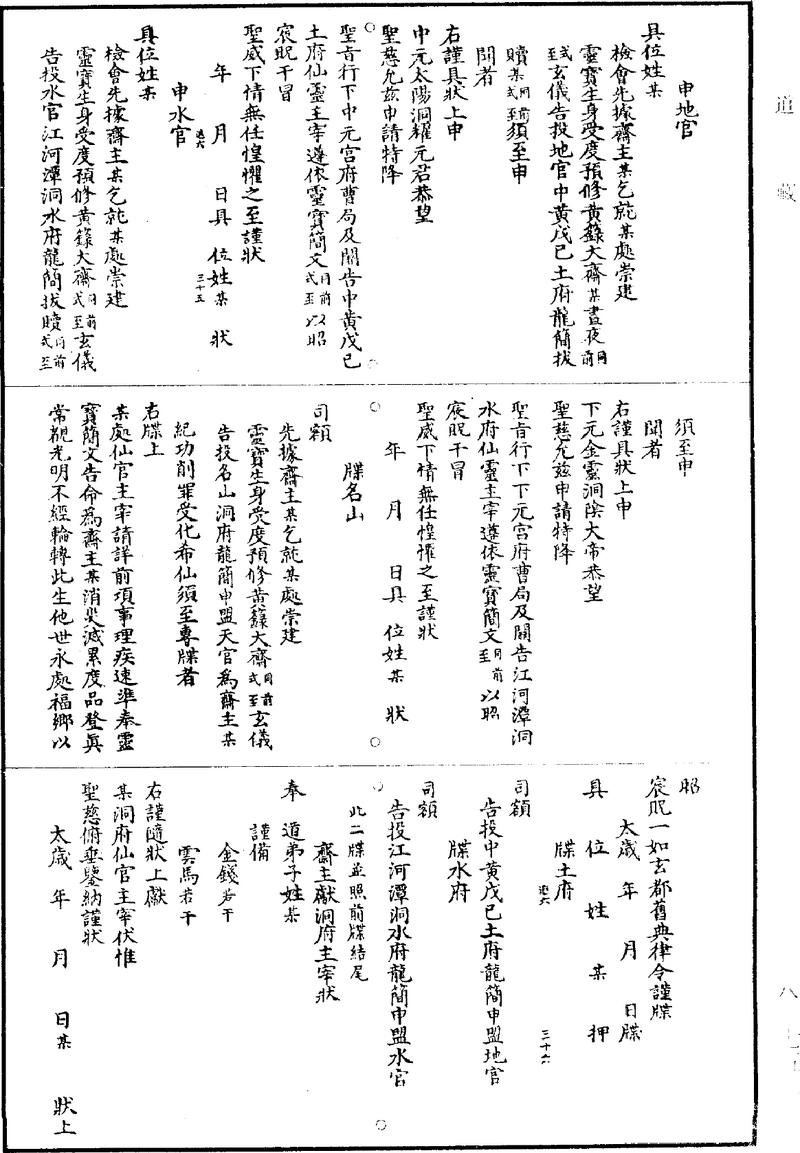 道藏
申地官
具位姓某
檢會先據齋主某乞就某處崇建
靈寶生身受度預修黃籙大齋某晝夜同前
式至玄儀告投地官中黃戊己土府龍簡拔
贖某同前式至須至申
聞者
右謹具狀上申
中元太陽洞耀元君恭望
聖慈允茲申請特降
聖旨行下中元宮府曹局及關告中黃戊己
土府仙靈主宰遵依靈寶簡文同前式至以昭
宸眖干冒
聖威下情無任惶懼之至謹狀
年 月 日具 位姓某 狀
三十五
申水官
具位姓某
檢會先據齋主某乞就某處崇建
靈寶生身受度預修黃籙大齋同前式至玄儀
告投水官江河潭洞水府龍簡拔贖同前式至
須至申
聞者
右謹具狀上申
下元金靈洞陰大帝恭望
聖慈允茲申請特降
聖旨行下下元宮府曹局及關告江河潭洞
水府仙靈主宰遵依靈寶簡文同前至以昭
宸眖干冒
聖威下情無任惶懼之至謹狀
年 月 日具 位姓某 狀
牒名山
司額
先據齋主某乞就某處崇建
靈寶生身受度預修黃籙大齋同前式至玄儀
告投名山洞府龍簡申盟天官為齋主某
紀功削罪受化希仙須至專牒者
右牒上
某處仙官主宰請詳前項事理疾速準奉靈
寶簡文告命為齋主某消災滅累度品登真
常觀光明不經輪轉此生他世永處福鄉以
昭
宸眖一如玄都舊典律令謹牒
太歲 年 月 日牒
具位姓某押
牒土府
三十六
司額
告投中黃戊己土府龍簡申盟地官
牒水府
司額
告投江河潭洞水府龍簡申盟水官
此二牒並照前牒結尾
齋主獻洞府主宰狀
奉 道弟子姓某
謹備
金錢若干
雲馬若干
右謹隨狀上獻
某洞府仙官主宰伏惟
聖慈俯垂鑒納謹狀
太歲 年 月 日某 狀上